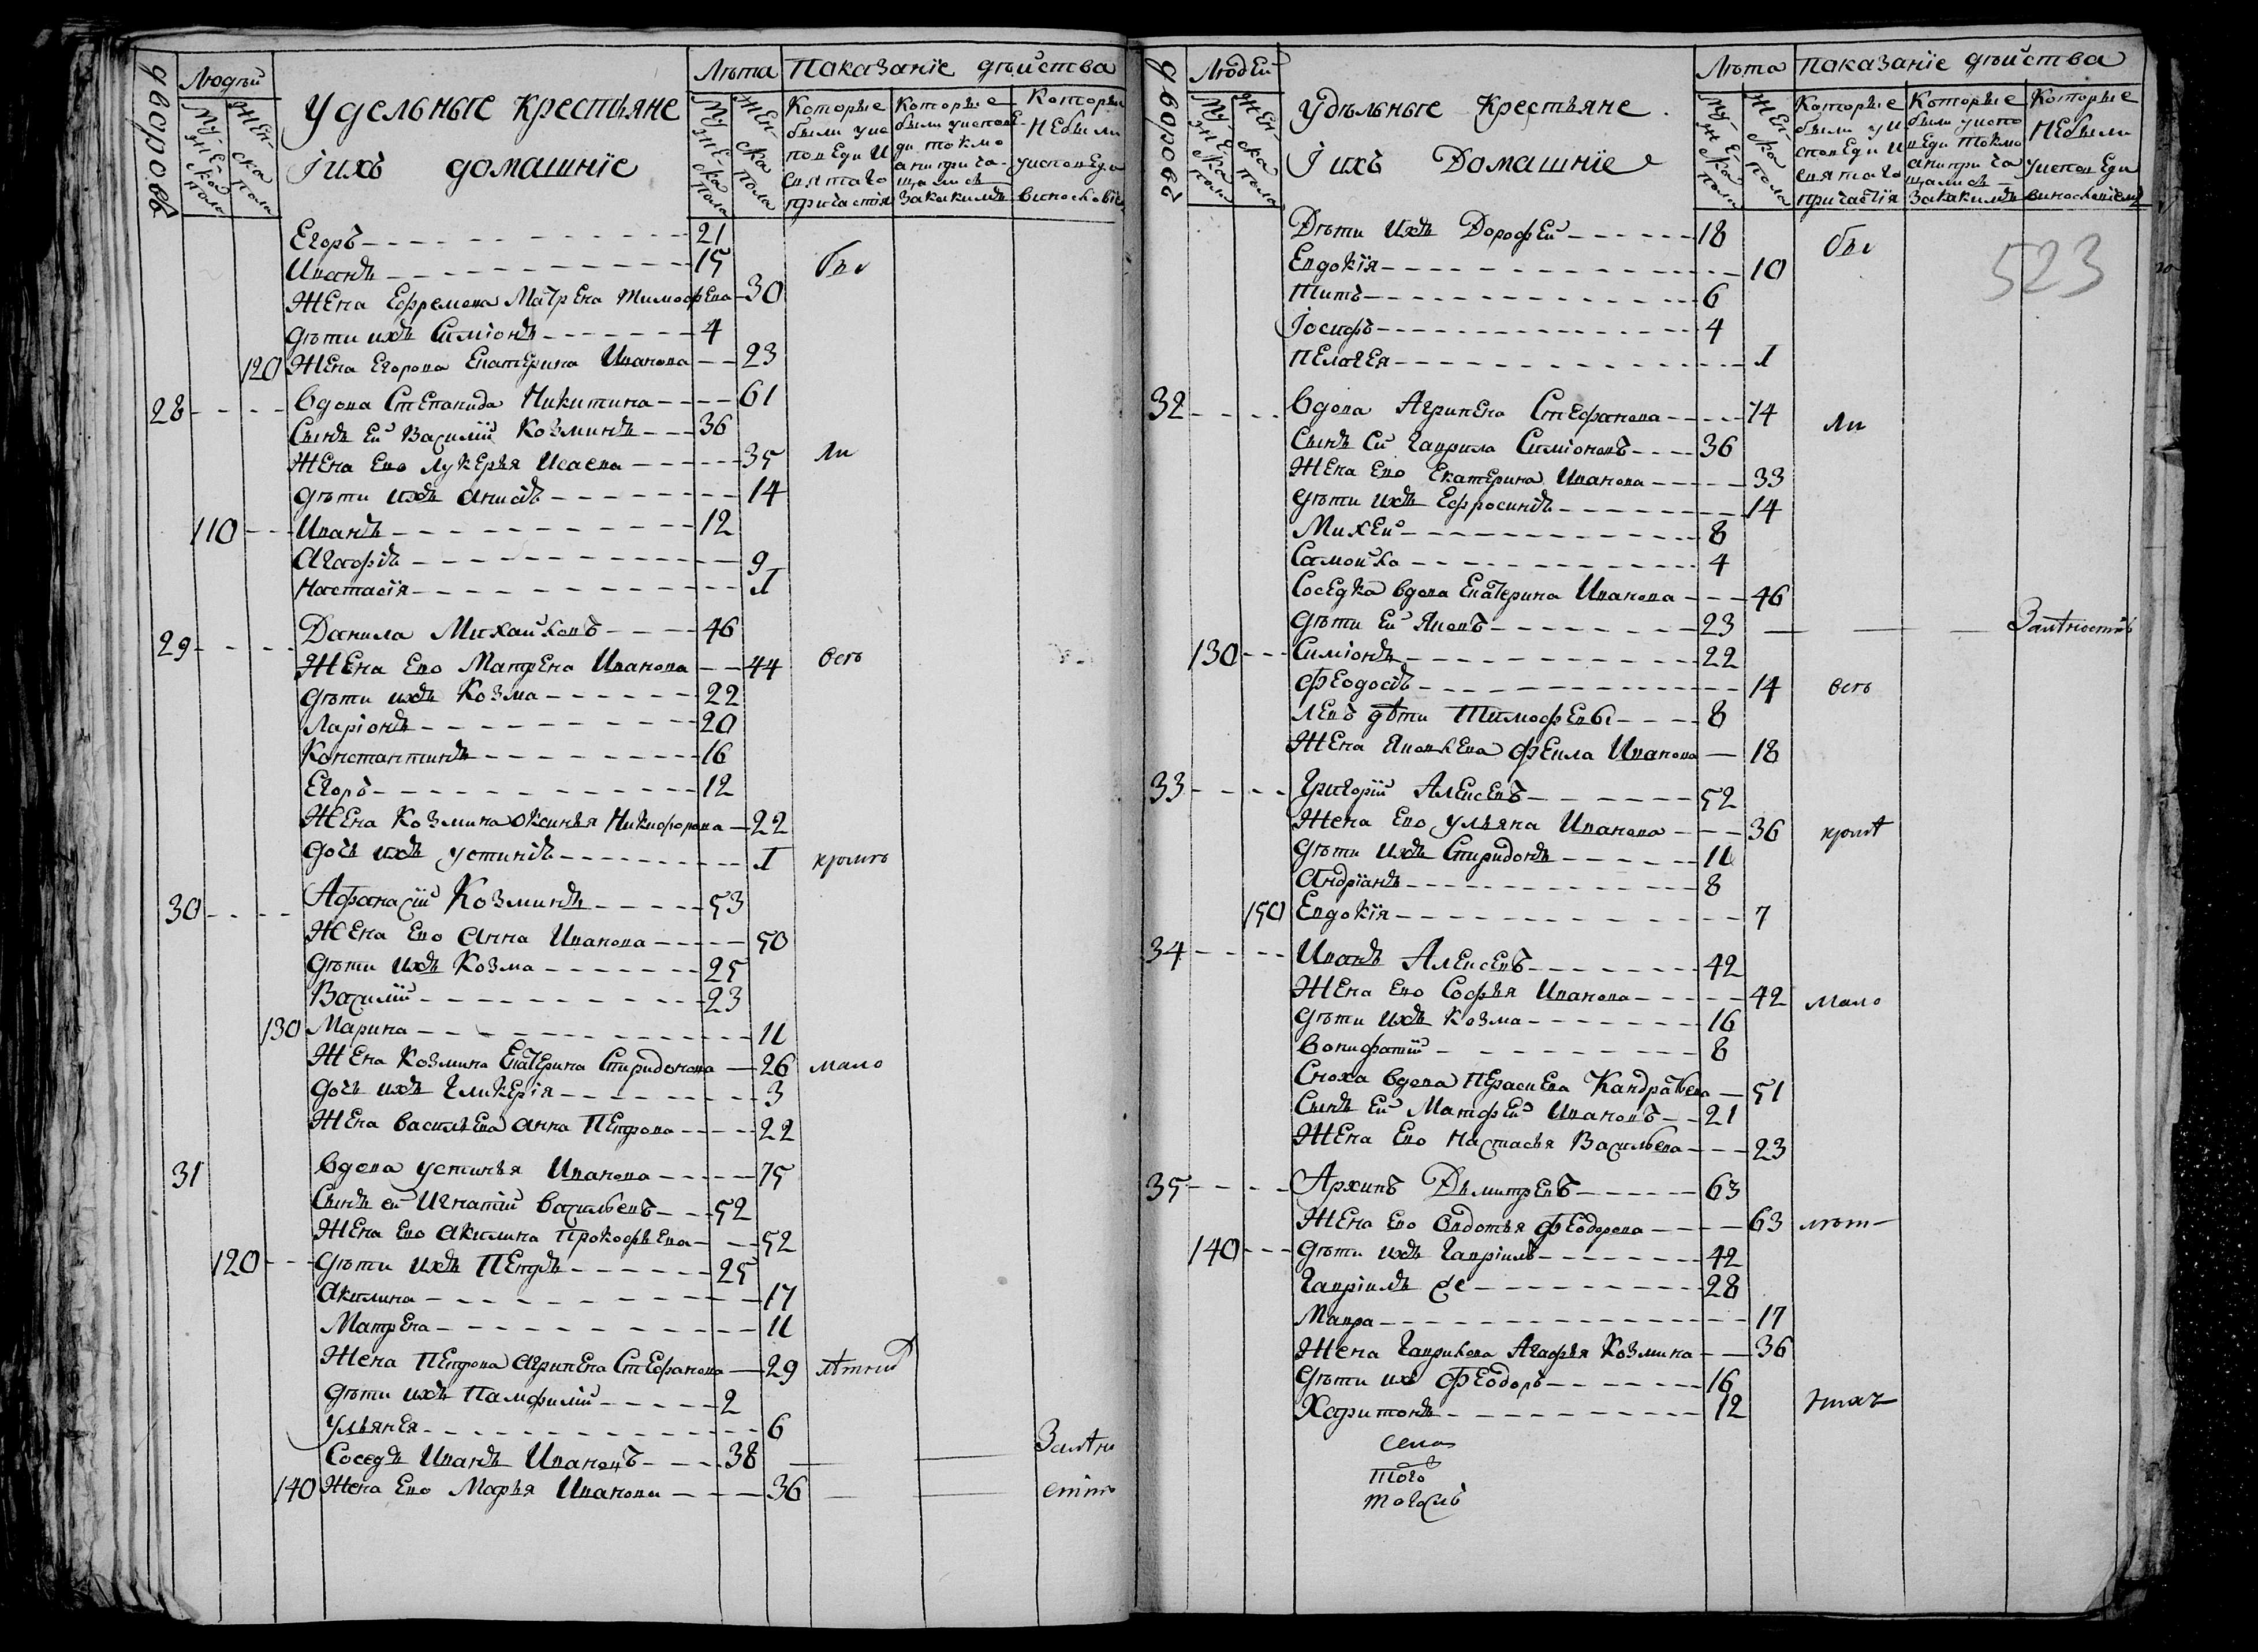 дворовъ
Людѣй
Му-жеска полу
Жен-ска полу
Удельные крестьяне
Iихъ домашнiе
Лѣта
Му-жеска пола
Жен-ска пола
Показанiе дѣйства
Которые были у исповеди и святаго причастiя
Которые были у исповеди токмо а не прича-
щались за какимъ
Которые не были у исповеди
Егоръ 21
Иванъ 15 бы
Жена Ефремова Матрена Тимофева 30
дѣти ихъ Симiонъ 4
120 Жена Егорова Екатерина Иванова 23
28 вдова Степанида Никитина 61
Сынъ ей Василiй Козминъ 36
Жена ево Лукерья Исаева 35 ли
дѣти ихъ Анисiѣ 14
110 Иванъ 12
Агафiѣ 9
Настасiя 1
29 Данила Михайловъ 46
Жена ево Матрена Иванова 44 всѣ
дѣти ихъ Козма 22
Ларiонъ 20
Константинъ 16
Егоръ 12
Жена Козмина Оксинья Никифорова 22
дочь ихъ Устинiѣ 1 кромѣ
30 Афанасiй Козминъ 53
Жена ево Анна Иванова 50
дѣти ихъ Козма 25
Василiй 23
130 Марина 11
Жена Козмина Екатерина Спиридонова 26 мало
дочь ихъ Гликерiя 3
Жена Васильева Анна Петрова 22
31 вдова Устинья Иванова 75
Сынъ ей Игнатiй Васильевъ 52
Жена ево Акилина Прокофьева 52
120 дѣти ихъ Петръ 25
Акилина 17
Матрена 11
Жена Петрова Агрипена Стефанова 29 лѣтни
дѣти ихъ Памфилiй 2
Ульянея 6
Соседъ Иванъ Ивановъ 38
140 Жена ево Марья Иванова 36
дворовъ
Людей
Му-жеска полу
Жен-ска полу
Удѣльные крестьяне
Iихъ Домашнiе
Лѣта
Му-жеска пола
Жен-ска пола
Показанiе дѣйства
Которые были у исповеди и святаго причастiя
Которые были у исповеди токмо а не прича
щались за какимъ
Которые не были у исповеди
523
Дѣти ихъ Дорофей 18 бы
Евдокiя 10
Титъ 6
Iосифъ 4
Пелагея 1
32 Вдова Агрипена Стефанова 74 ли
Сынъ ей Гаврила Симiоновъ 36
Жена ево Екатерина Иванова 33
дѣти ихъ Ефросинiѣ 14
Михей 8
Самойло 4
Соседка вдова Екатерина Иванова 46
дѣти ей Яковъ 23
130 Симiонъ 22
Феодосiѣ 14 всѣ
Левъ дѣти Тимофевы 8
Жена Яковлева Фекла Иванова 18
33 Григорiй Алексевъ 52
Жена ево Ульяна Иванова 36 кромѣ
дѣти ихъ Спиридонъ 11
Андрiанъ 8
150 Евдокiя 7
34 Иванъ Алексевъ 42
Жена ево Софья Иванова 42 мало
дѣти ихъ Козма 16
Вонифатiй 8
Сноха вдова Перасиева Кандратьева 51
Сынъ ей Матфей Ивановъ 21
Жена ево Настасья Васильева 23
35 Архипъ Дѣмитревъ 63
Жена ево Овдотья Феодорова 63 лѣт-
140 дѣти ихъ Гаврiилъ 42
Гаврiилъ же 28
Мавра 17
Жена Гаврилова Агафья Козмина 36
дѣти ихъ Феодоръ 16
Харитонъ 12
села
того